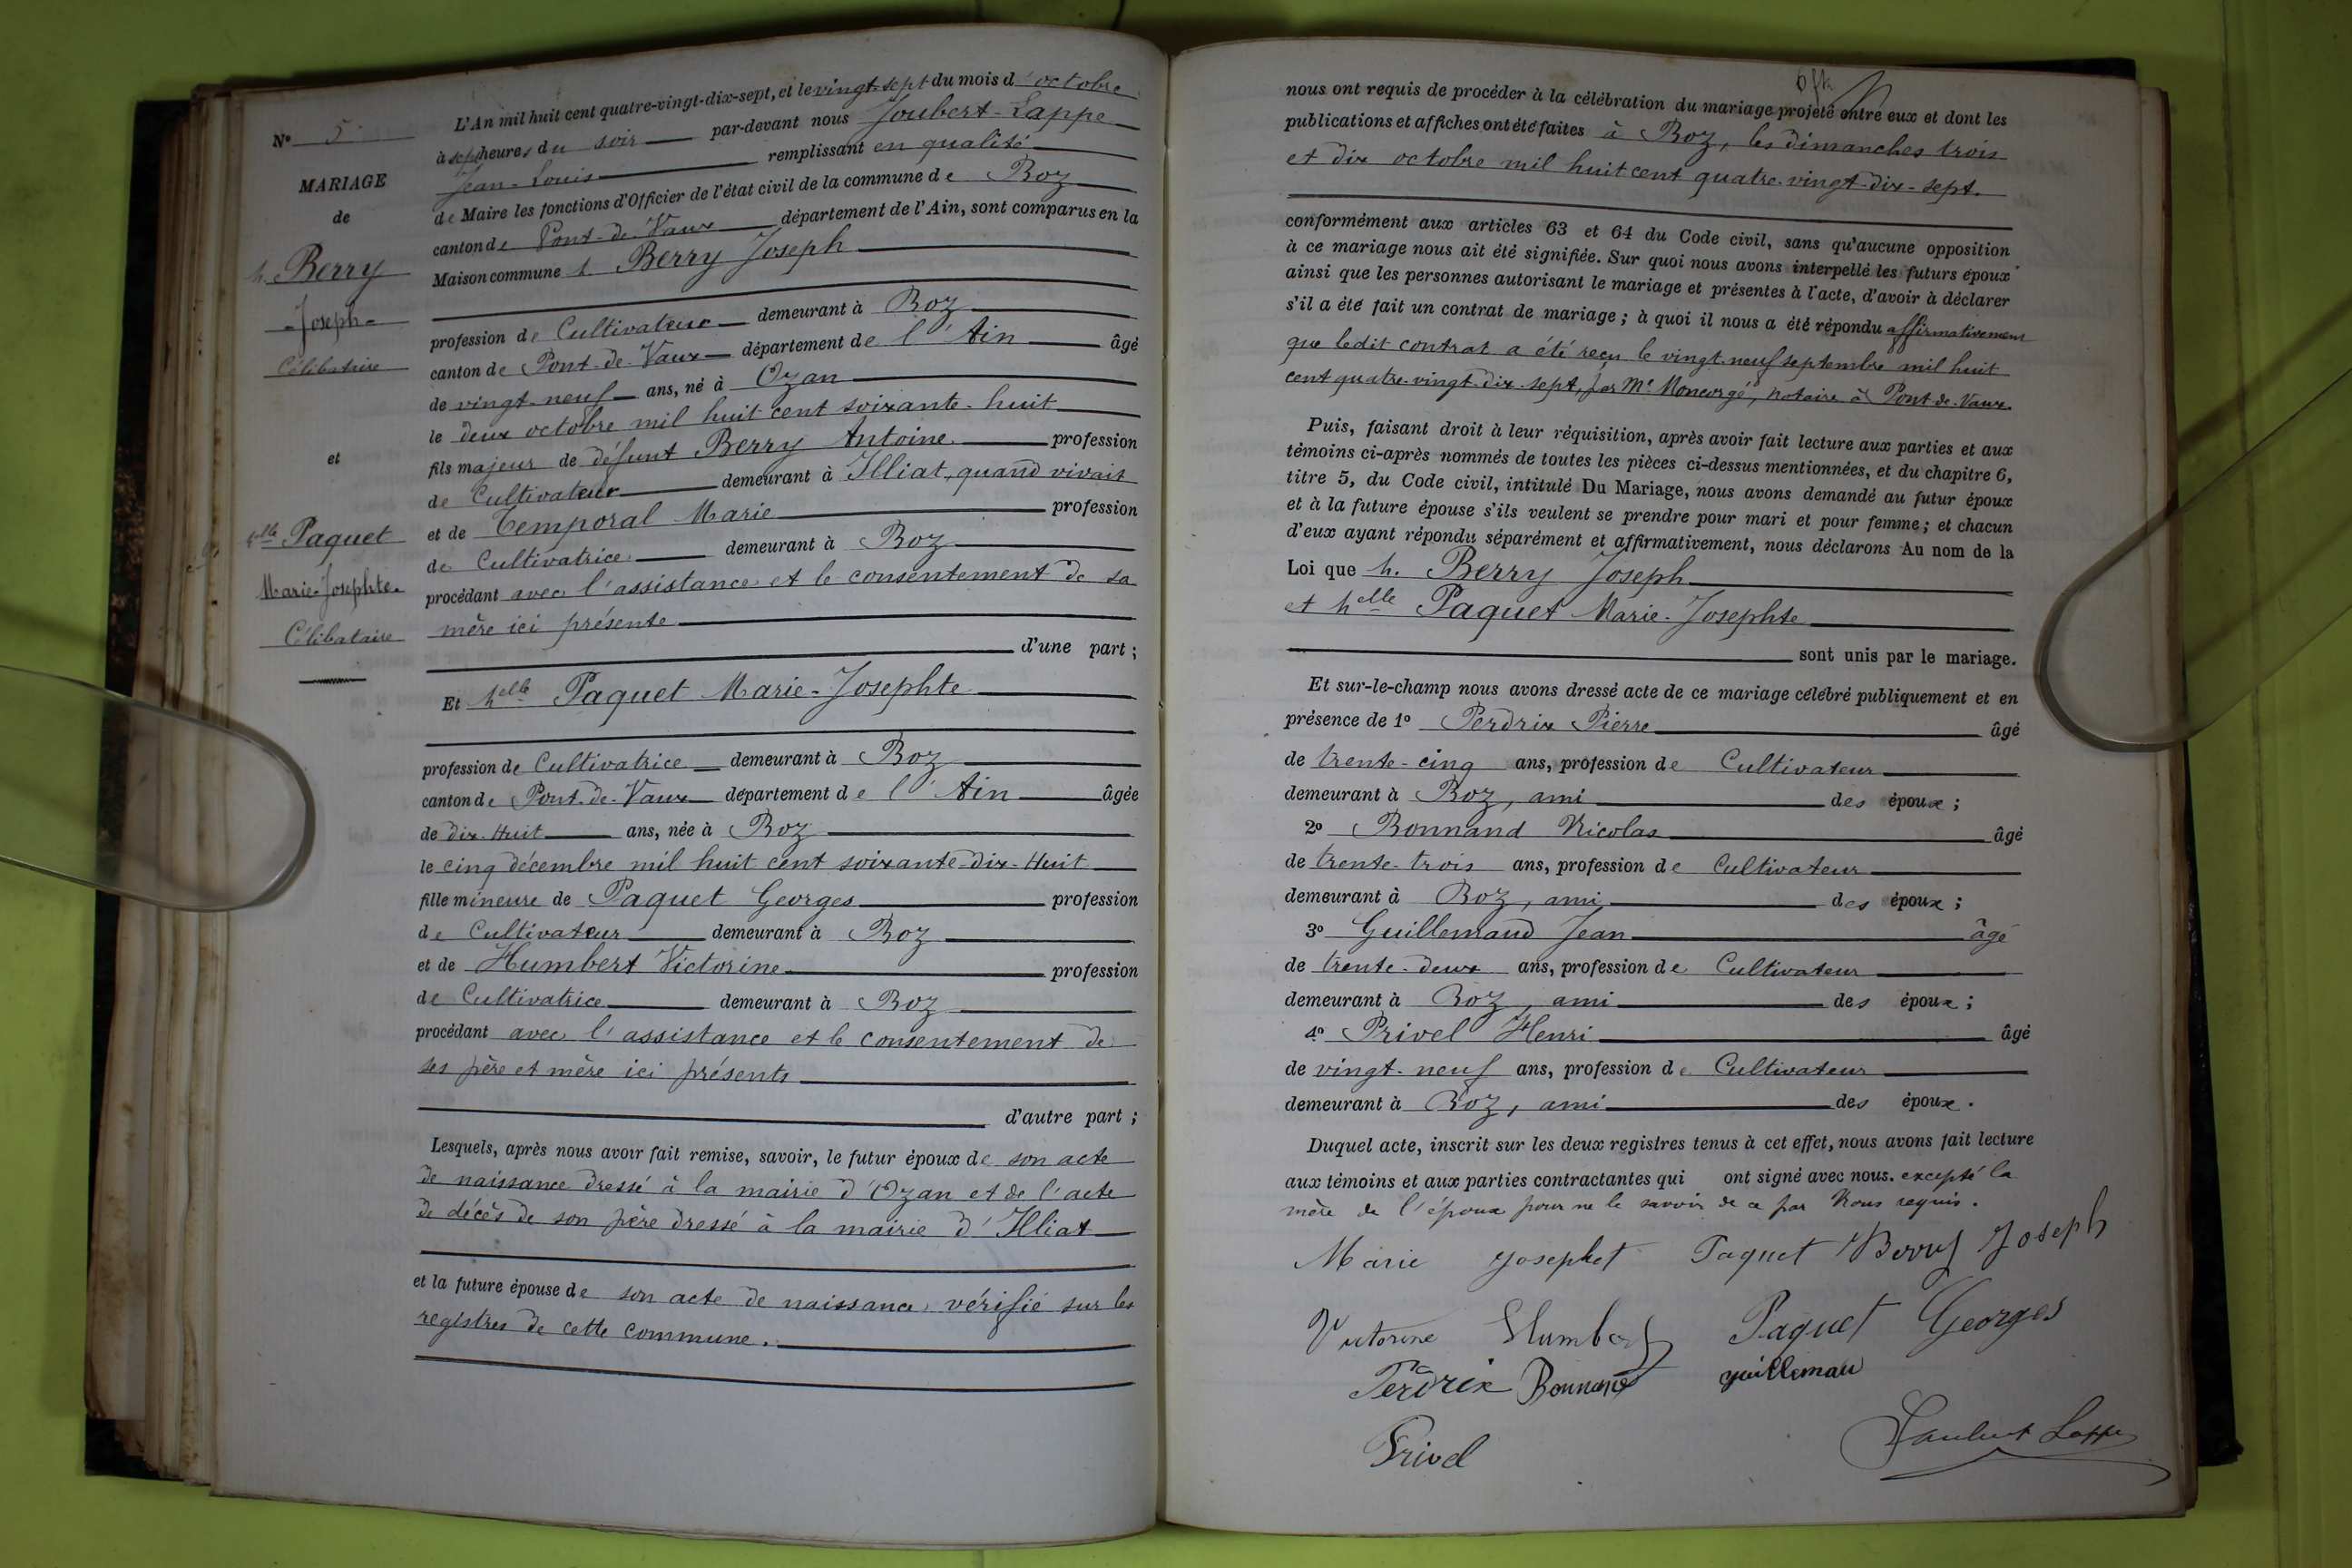 N° 5
MARIAGE
de
h. Berry
Joseph
Célibataire
et
helle Paquet
Marie-Josephte
Célibataire
L'An mil huit cent quatre-vingt-dix-sept, et le vingt-sept du mois d'octobre
à sept heures du soir par-devant nous Joubert-Lappe
Jean-Louis remplissant en qualité
de Maire les fonctions d'Officier de l'état civil de la commune de Boz
canton de Pont-de-Vaux département de l'Ain, sont comparus en la
Maison commune h. Berry Joseph
profession de Cultivateur demeurant à Boz
canton de Pont-de-Vaux département de l'Ain âgé
de vingt-neuf ans, né à Ozan
le deux octobre mil huit cent soixante-huit
fils majeur de défunt Berry Antoine profession
de Cultivateur demeurant à Illiat, quand vivait
et de Temporal Marie profession
de Cultivatrice demeurant à Boz
procédant avec l'assistance et le consentement de sa
mère ici présente
d'une part ;
Et helle Paquet Marie-Josephte
profession de Cultivatrice demeurant à Boz
canton de Pont-de-Vaux département de l'Ain âgée
de dix-huit ans, née à Boz
le cinq décembre mil huit cent soixante-dix-Huit
fille mineure de Paquet Georges profession
de Cultivateur demeurant à Boz
et de Humbert Victorine profession
de Cultivatrice demeurant à Boz
procédant avec l'assistance et le consentement de
ses père et mère ici présents
d'autre part ;
Lesquels, après nous avoir fait remise, savoir, le futur époux de son acte
de naissance dressé à la mairie d'Ozan et de l'acte
de décès de son père dressé à la mairie d'Illiat
et la future épouse de son acte de naissance vérifié sur les
registres de cette commune.
nous ont requis de procéder à la célébration du mariage projeté entre eux et dont les
publications et affiches ont été faites à Boz, les dimanches trois
et dix octobre mil huit cent quatre-vingt-dix-sept.
conformément aux articles 63 et 64 du Code civil, sans qu'aucune opposition
à ce mariage nous ait été signifiée. Sur quoi nous avons interpellé les futurs époux
ainsi que les personnes autorisant le mariage et présentes à l'acte, d'avoir à déclarer
s'il a été fait un contrat de mariage ; à quoi il nous a été répondu affirmativement
que ledit contrat a été reçu le vingt-neuf septembre mil huit
cent quatre-vingt-dix-sept, par Me Moncorgé, notaire à Pont-de-Vaux.
Puis, faisant droit à leur réquisition, après avoir fait lecture aux parties et aux
témoins ci-après nommés de toutes les pièces ci-dessus mentionnées, et du chapitre 6,
titre 5, du Code civil, intitulé Du Mariage, nous avons demandé au futur époux
et à la future épouse s'ils veulent se prendre pour mari et pour femme ; et chacun
d'eux ayant répondu séparément et affirmativement, nous déclarons Au nom de la
Loi que h. Berry Joseph
et helle Paquet Marie-Josephte
sont unis par le mariage.
Et sur-le-champ nous avons dressé acte de ce mariage célébré publiquement et en
présence de 1° Perdrix Pierre âgé
de trente-cinq ans, profession de Cultivateur
demeurant à Boz, ami des époux ;
2° Bonnand Nicolas âgé
de trente-trois ans, profession de Cultivateur
demeurant à Boz, ami des époux ;
3° Guillemaud Jean âgé
de trente-deux ans, profession de Cultivateur
demeurant à Boz, ami des époux ;
4° Privel Henri âgé
de vingt-neuf ans, profession de Cultivateur
demeurant à Boz, ami des époux.
Duquel acte, inscrit sur les deux registres tenus à cet effet, nous avons fait lecture
aux témoins et aux parties contractantes qui ont signé avec nous. excepté la
mère de l'époux pour ne le savoir de ce par Nous requis.
Marie Josephet Paquet Berry Joseph
Victorine Humbert Paquet Georges
Perdrix Bonnand guillemau
Privel
Joubert Lappe